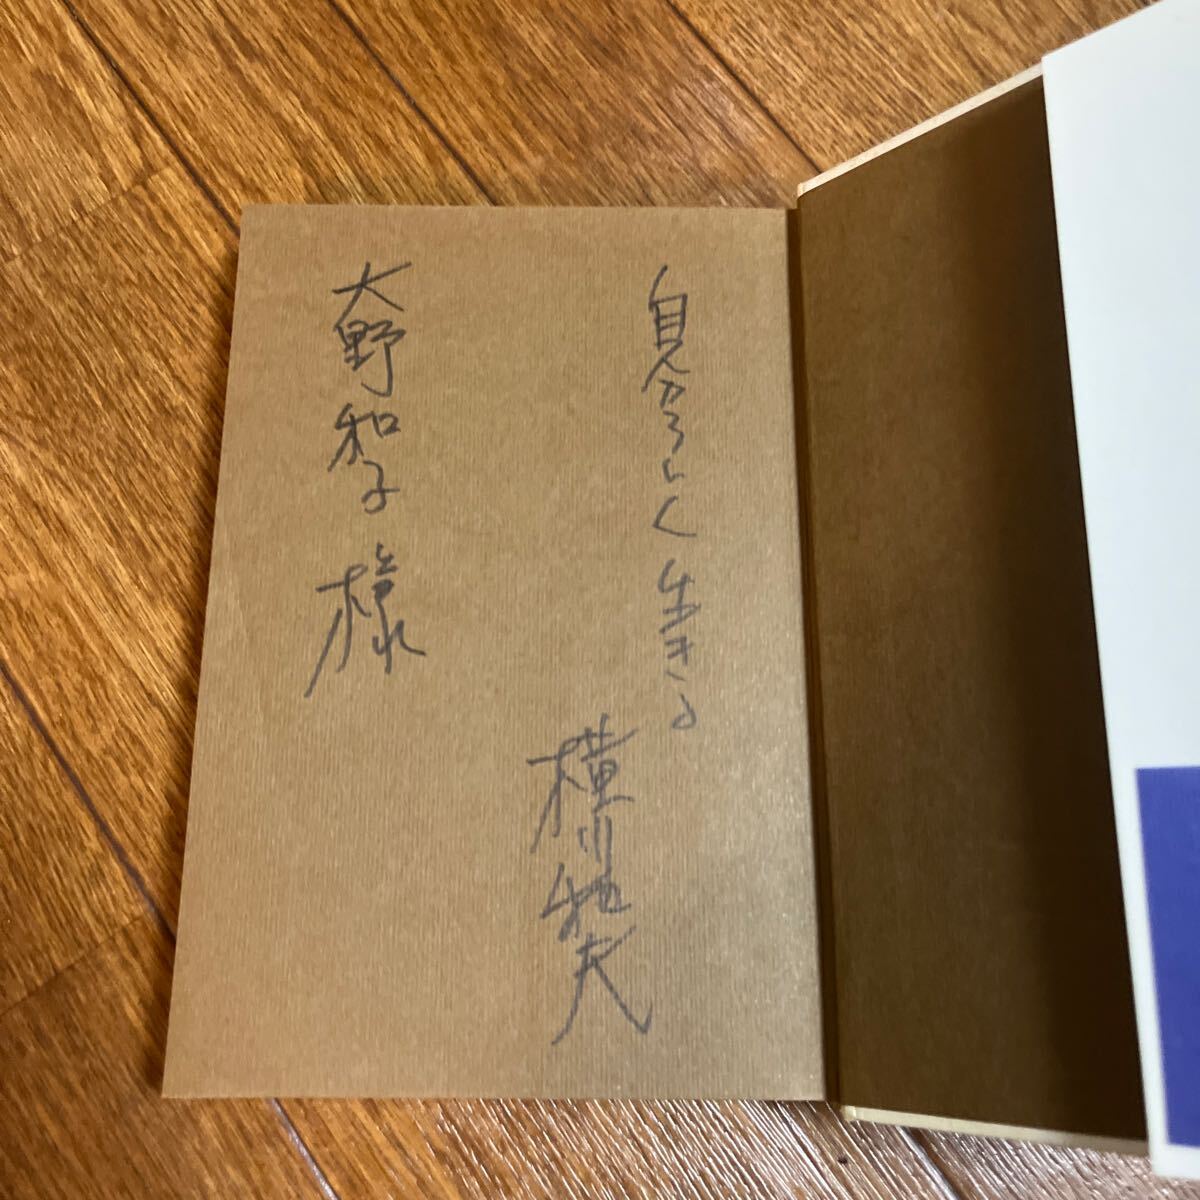 自分らしく生きる
横川和夫
大野和子様